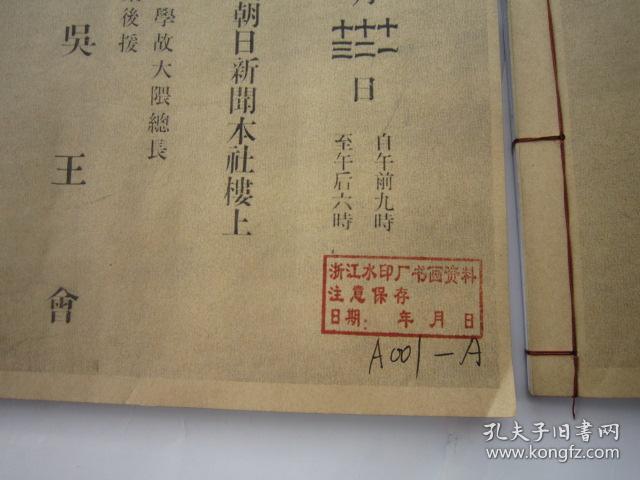 月
十一
十二
十三
日
自午前九時
至午后六時
朝日新聞本社樓上
學故大隈總長
後援
吳王會
浙江水印厂书画资料
注意保存
日期: 年 月 日
A001-A
孔夫子旧书网
www.kongfz.com